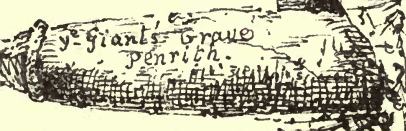 ye Giants Grave
Penrith.